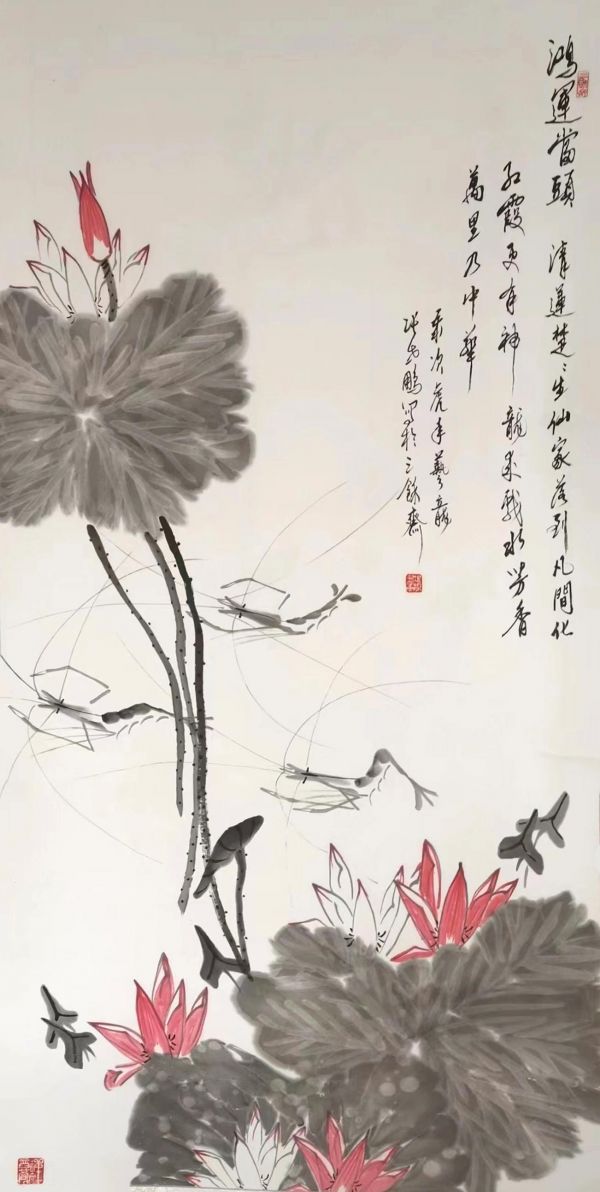 鴻運當頭 清蓮楚〻生仙家落到凡間化
紅霞更有神 龍來戲水芳香
萬里乃中華
歲次虎年藝龍
張世鵬寫於三餘齋